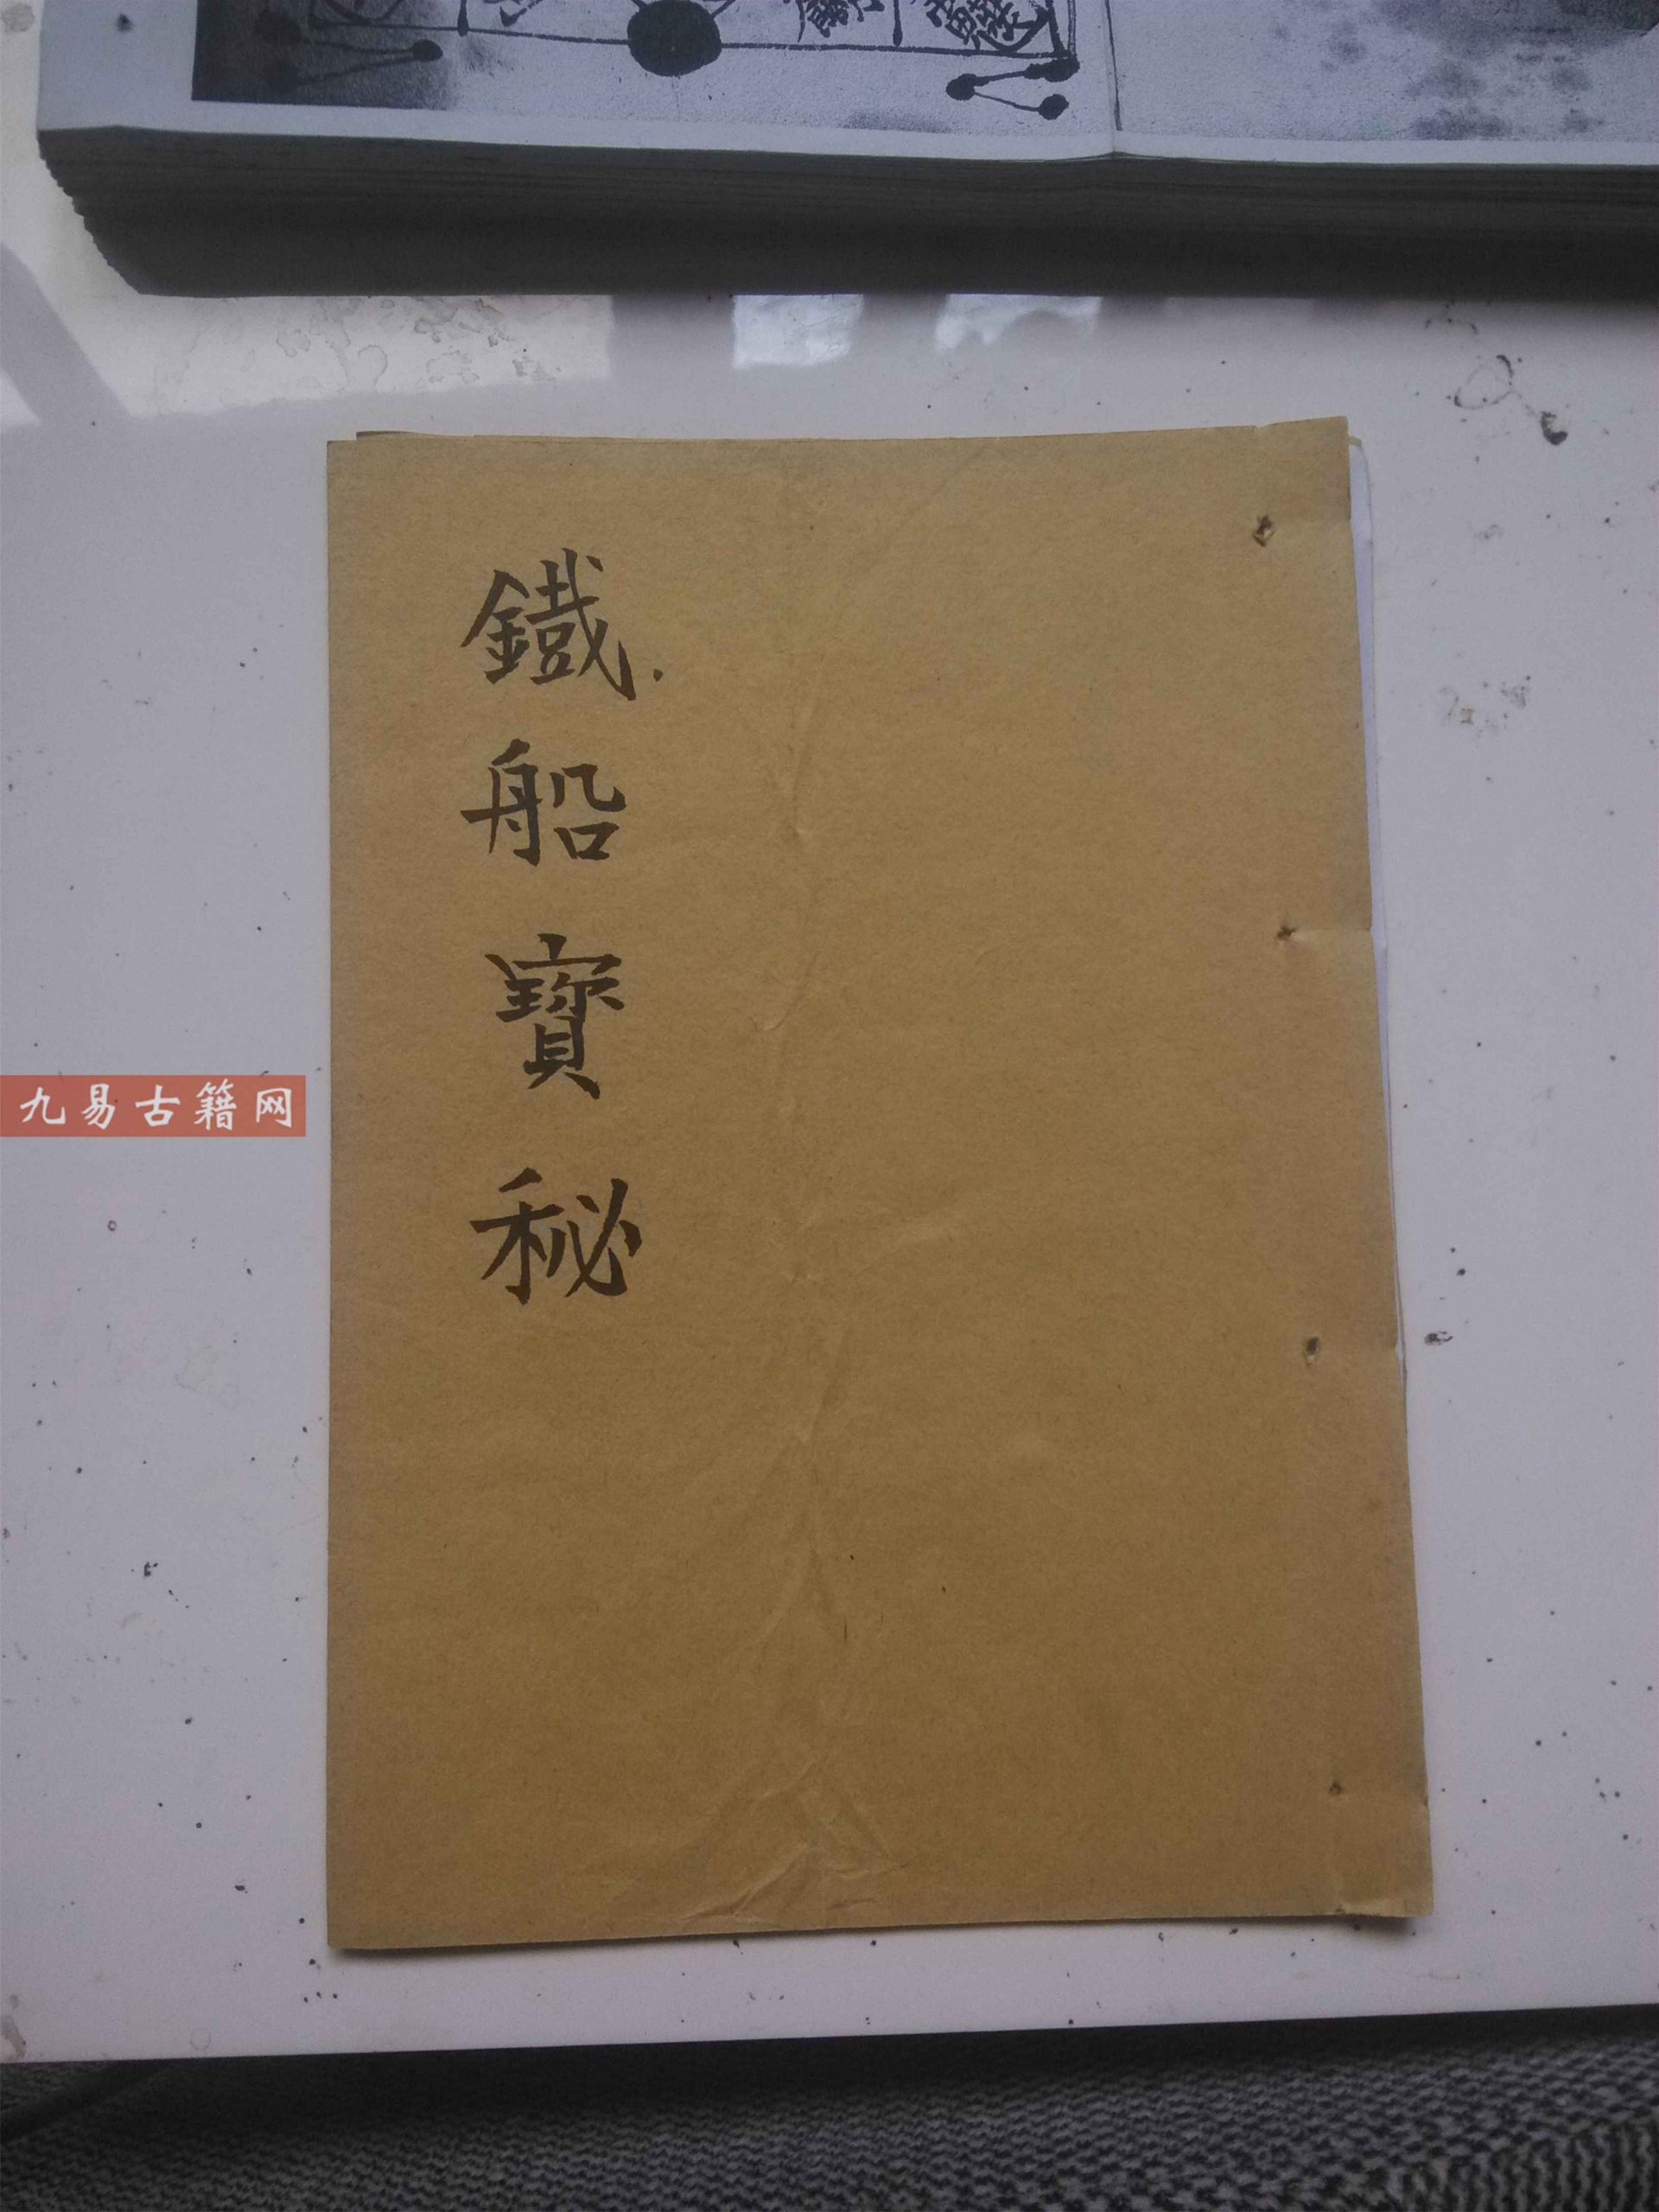 鐡船寶秘
九易古籍网